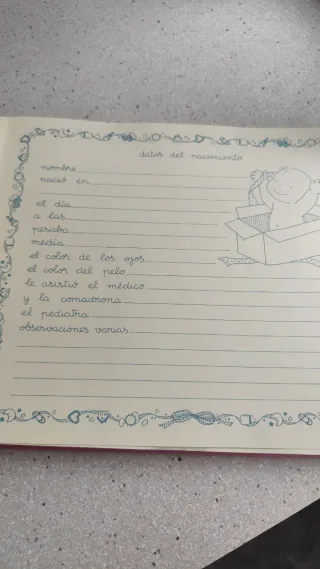 datos del nacimiento
nombre
nació en
el día
a las
pesaba
medía
el color de los ojos
el color del pelo
le asistió el médico
y la comadrona
el pediatra
observaciones varias